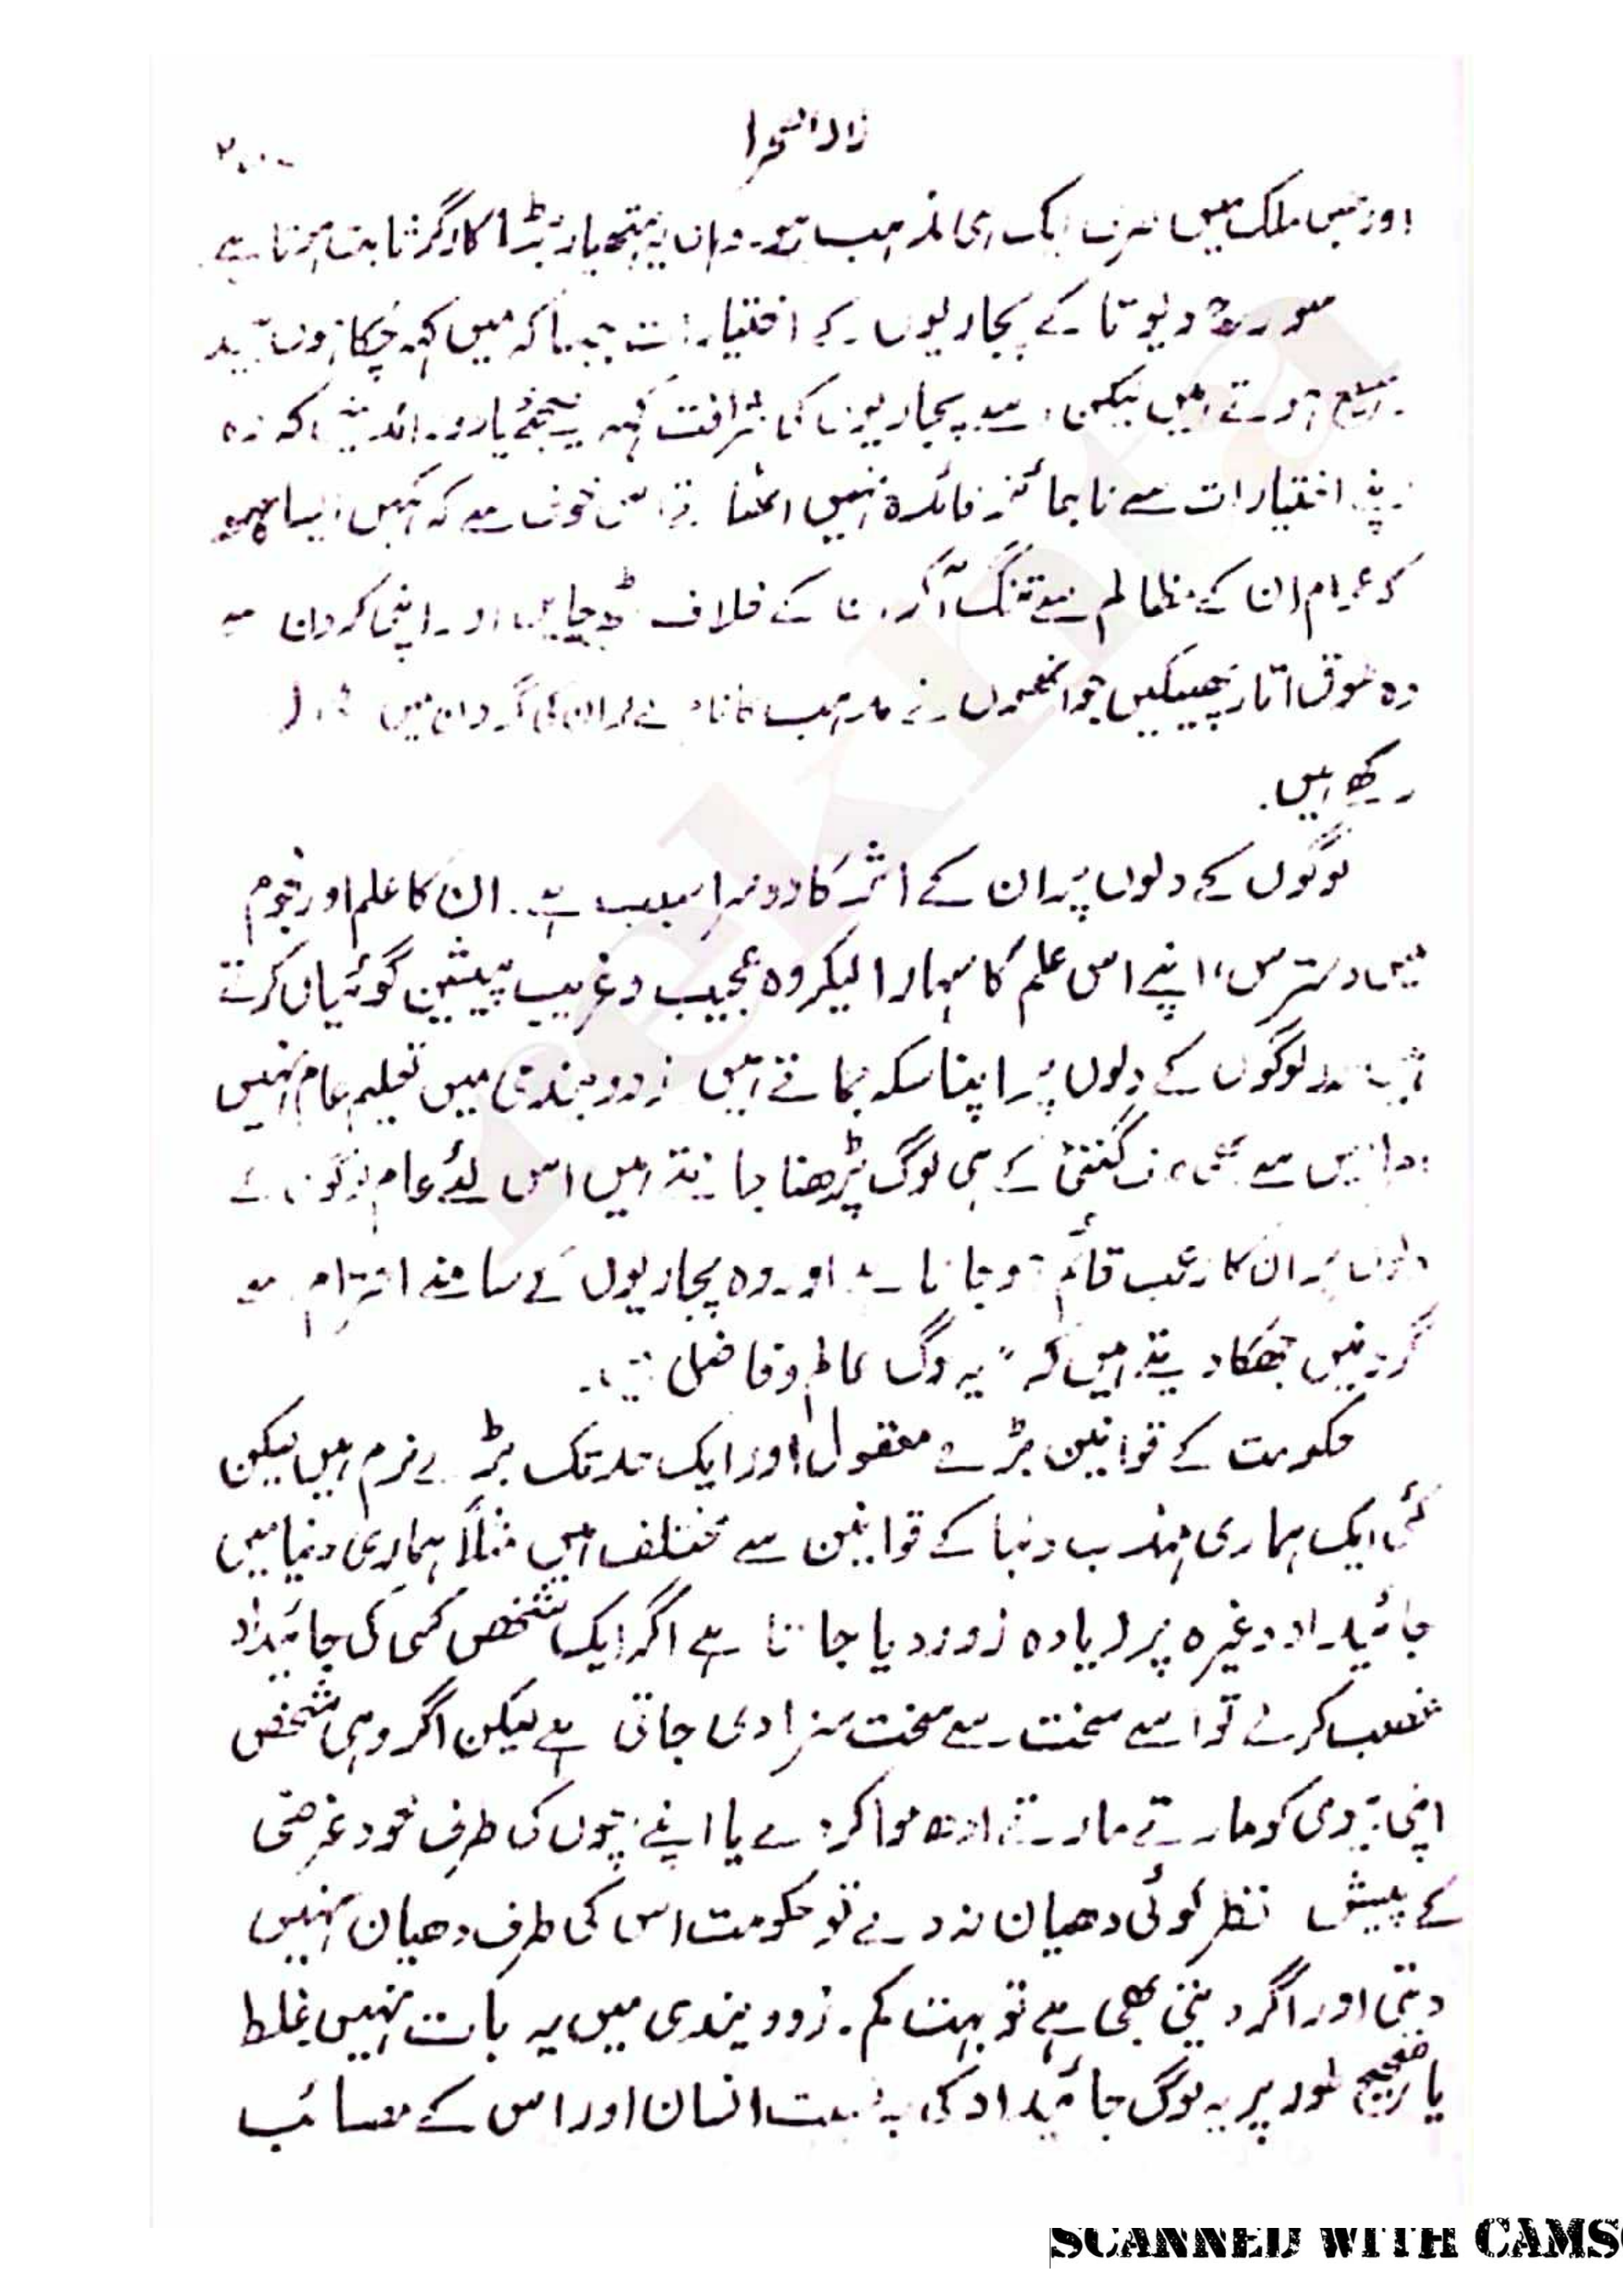 زاد الصحرا
اور جس ملک میں صرف ایک ہی مذہب ہو۔ وہاں یہ ہتھیار بڑا کارگر ثابت ہوتا ہے
سورج دیوتا کے پجاریوں کے اختیارات جیسا کہ میں کہہ چکا ہوں
وسیع ہوتے ہیں لیکن اسے پجاریوں کی شرافت کہہ لیجئے یا دور اندیشی کہ وہ
اپنے اختیارات سے ناجائز فائدہ نہیں اٹھاتے اس خوف سے کہ کہیں ایسا نہ ہو
کہ عوام ان کے مظالم سے تنگ آ کر ان کے خلاف اٹھ جایں اور اپنی گردن سے
وہ طوق اتار پھینکیں جو انھوں نے مذہب کا نام لے کر ان کی گردن میں ڈال
رکھے ہیں۔
لوگوں کے دلوں پر ان کے اثر کا دوسرا سبب ہے۔ ان کا علم اور نجوم
میں دسترس، اپنے اس علم کا سہارا لیکر وہ عجیب و غریب پیشین گوئیاں کرتے
ہیں اور لوگوں کے دلوں پر اپنا سکہ جماتے ہیں زوویندی میں تعلیم عام نہیں
سے بھی گنتی کے ہی لوگ پڑھنا جانتے ہیں اس لئے عام لوگوں کے
دلوں پر ان کا رعب قائم ہو جاتا ہے اور وہ پجاریوں کے سامنے احترام سے
گردنیں جھکا دیتے ہیں کہ "یہ لوگ عالم و فاضل ہیں"۔
حکومت کے قوانین بڑے معقول اور ایک حد تک بڑے نرم ہیں لیکن
کئی ایک ہماری مہذب دنیا کے قوانین سے مختلف ہیں مثلاً ہماری دنیا میں
جائیداد وغیرہ پر زیادہ زور دیا جاتا ہے اگر ایک شخص کسی کی جائیداد
غصب کرلے تو اسے سخت سے سخت سزا دی جاتی ہے لیکن اگر وہی شخص
اپنی بیوی کو مارتے مارتے ادھ موا کر دے یا اپنے بچوں کی طرف خود غرضی
کے پیش نظر کوئی دھیان نہ دے تو حکومت اس کی طرف دھیان نہیں
دیتی اور اگر دیتی بھی ہے تو بہت کم۔ زوویندی میں یہ بات نہیں غلط
یا صحیح طور پر یہ لوگ جائیداد کی بہ نسبت انسان اور اس کے مصائب
SCANNED WITH CAMS